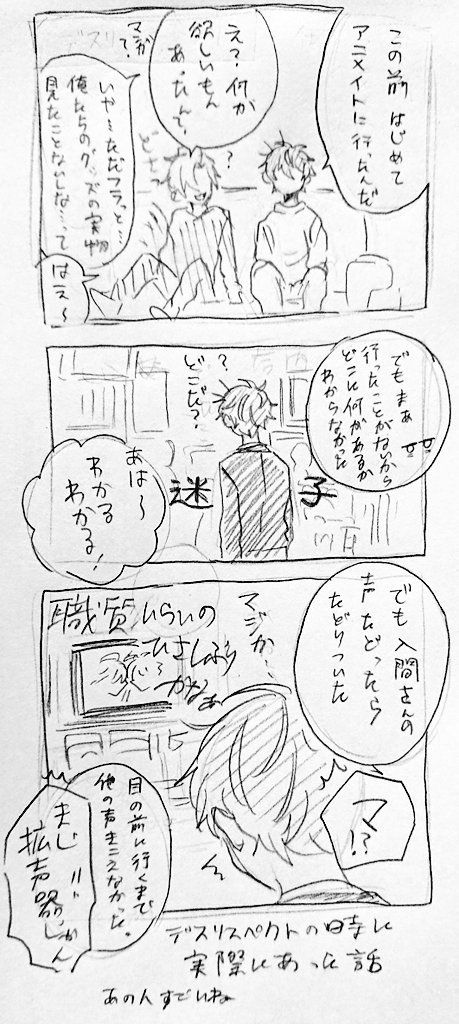 この前 はじめて
アニメイトに行ったんだ
え？何か
欲しいもん
あったんて？
マジか
？
いや…ただフラっと…
俺たちのグッズの実物
見たことないしな…って
はえ〜
でもまぁ
行ったことがないから
どこに何があるか
わからなかった
？
どこだ？
迷子
あは〜
わかる
わかる！
でも入間さんの
声たどったら
たどりついた
マジか…
職質いらいの
ひさしぶり
かなぁ
マ
!?
目の前に行くまで
他の声きこえなかった。
まじ
拡声器じゃん
デスリスペクトの時に
実際にあった話
あの人すごいね